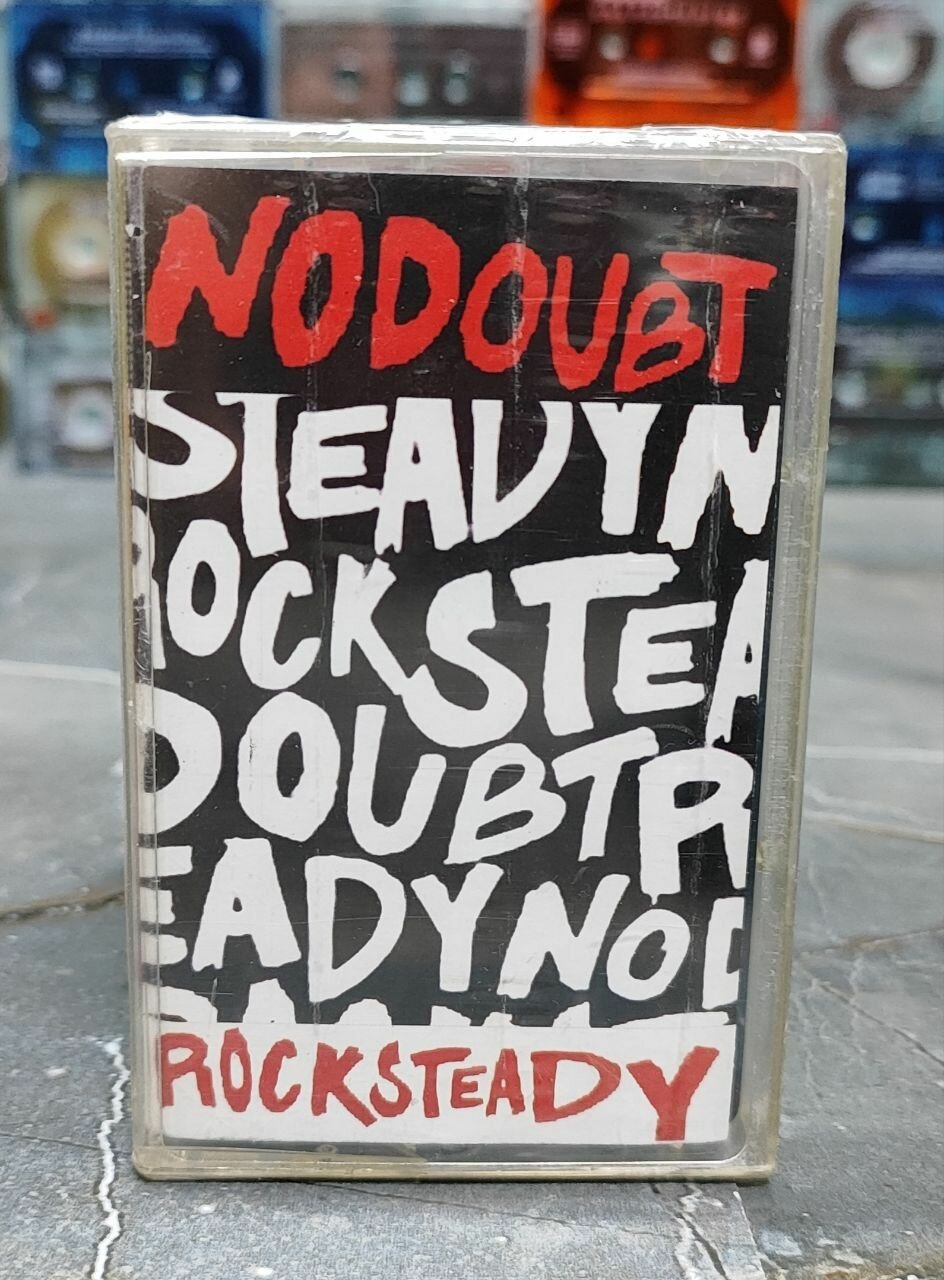 NO DOUBT
STEADY N
ROCK STEA
DOUBT R
EADY NO D
ROCK STEADY